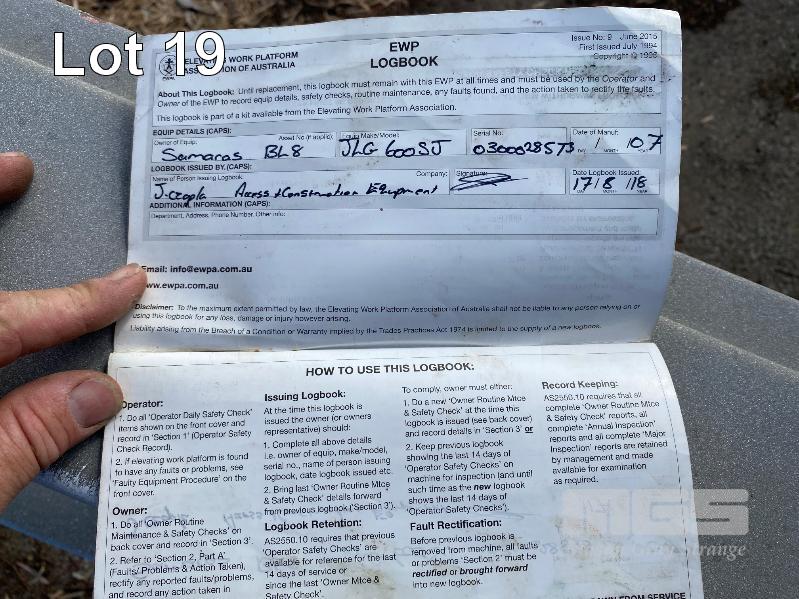 Lot 19
ELEVATING WORK PLATFORM
ASSOCIATION OF AUSTRALIA
EWP
LOGBOOK
Issue No: 9 June 2015
First Issued July 1994
Copyright © 1996
About This Logbook: Until replacement, this logbook must remain with this EWP at all times and must be used by the Operator and
Owner of the EWP to record equip details, safety checks, routine maintenance, any faults found, and the action taken to rectify the faults.
This logbook is part of a kit available from the Elevating Work Platform Association.
EQUIP DETAILS (CAPS):
Owner of Equip: Asset No (if applic): Equip Make/Model: Serial No: Date of Manuf:
Samaras BL8 JLG 600SJ 0300028573 / 107
DAY MONTH YEAR
LOGBOOK ISSUED BY (CAPS):
Name of Person Issuing Logbook: Company: Signature: Date Logbook Issued:
Access + Construction Equipment 17/8/18
DAY MONTH YEAR
ADDITIONAL INFORMATION (CAPS):
Department, Address, Phone Number, Other info:
Email: info@ewpa.com.au
www.ewpa.com.au
Disclaimer: To the maximum extent permitted by law, the Elevating Work Platform Association of Australia shall not be liable to any person relying on or
using this logbook for any loss, damage or injury however arising.
Liability arising from the Breach of a Condition or Warranty implied by the Trades Practices Act 1974 is limited to the supply of a new logbook.
HOW TO USE THIS LOGBOOK:
Operator:
1. Do all 'Operator Daily Safety Check'
items shown on the front cover and
record in 'Section 1' (Operator Safety
Check Record).
2. If elevating work platform is found
to have any faults or problems, see
'Faulty Equipment Procedure' on the
front cover.
Owner:
1. Do all 'Owner Routine
Maintenance & Safety Checks' on
back cover and record in 'Section 3'.
2. Refer to 'Section 2, Part A'
(Faults/ Problems & Action Taken),
rectify any reported faults/problems,
and record any action taken in
Issuing Logbook:
At the time this logbook is
issued the owner (or owners
representative) should:
1. Complete all above details
i.e. owner of equip, make/model,
serial no., name of person issuing
logbook, date logbook issued etc.
2. Bring last 'Owner Routine Mtce
& Safety Check' details forward
from previous logbook ('Section 3').
Logbook Retention:
AS2550.10 requires that previous
'Operator Safety Checks' are
available for reference for the last
14 days of service or
since the last 'Owner Mtce &
Safety Check'.
To comply, owner must either:
1. Do a new 'Owner Routine Mtce
& Safety Check' at the time this
logbook is issued (see back cover)
and record details in 'Section 3' or
2. Keep previous logbook
showing the last 14 days of
'Operator Safety Checks' on
machine for inspection land until
such time as the new logbook
shows the last 14 days of
'Operator Safety Checks').
Fault Rectification:
Before previous logbook is
removed from machine, all faults
or problems 'Section 2' must be
rectified or brought forward
into new logbook.
Record Keeping:
AS2550.10 requires that all
complete 'Owner Routine Mtce
& Safety Check' reports, all
complete 'Annual Inspection'
reports and all complete 'Major
Inspection' reports are retained
by management and made
available for examination
as required.
FROM SERVICE